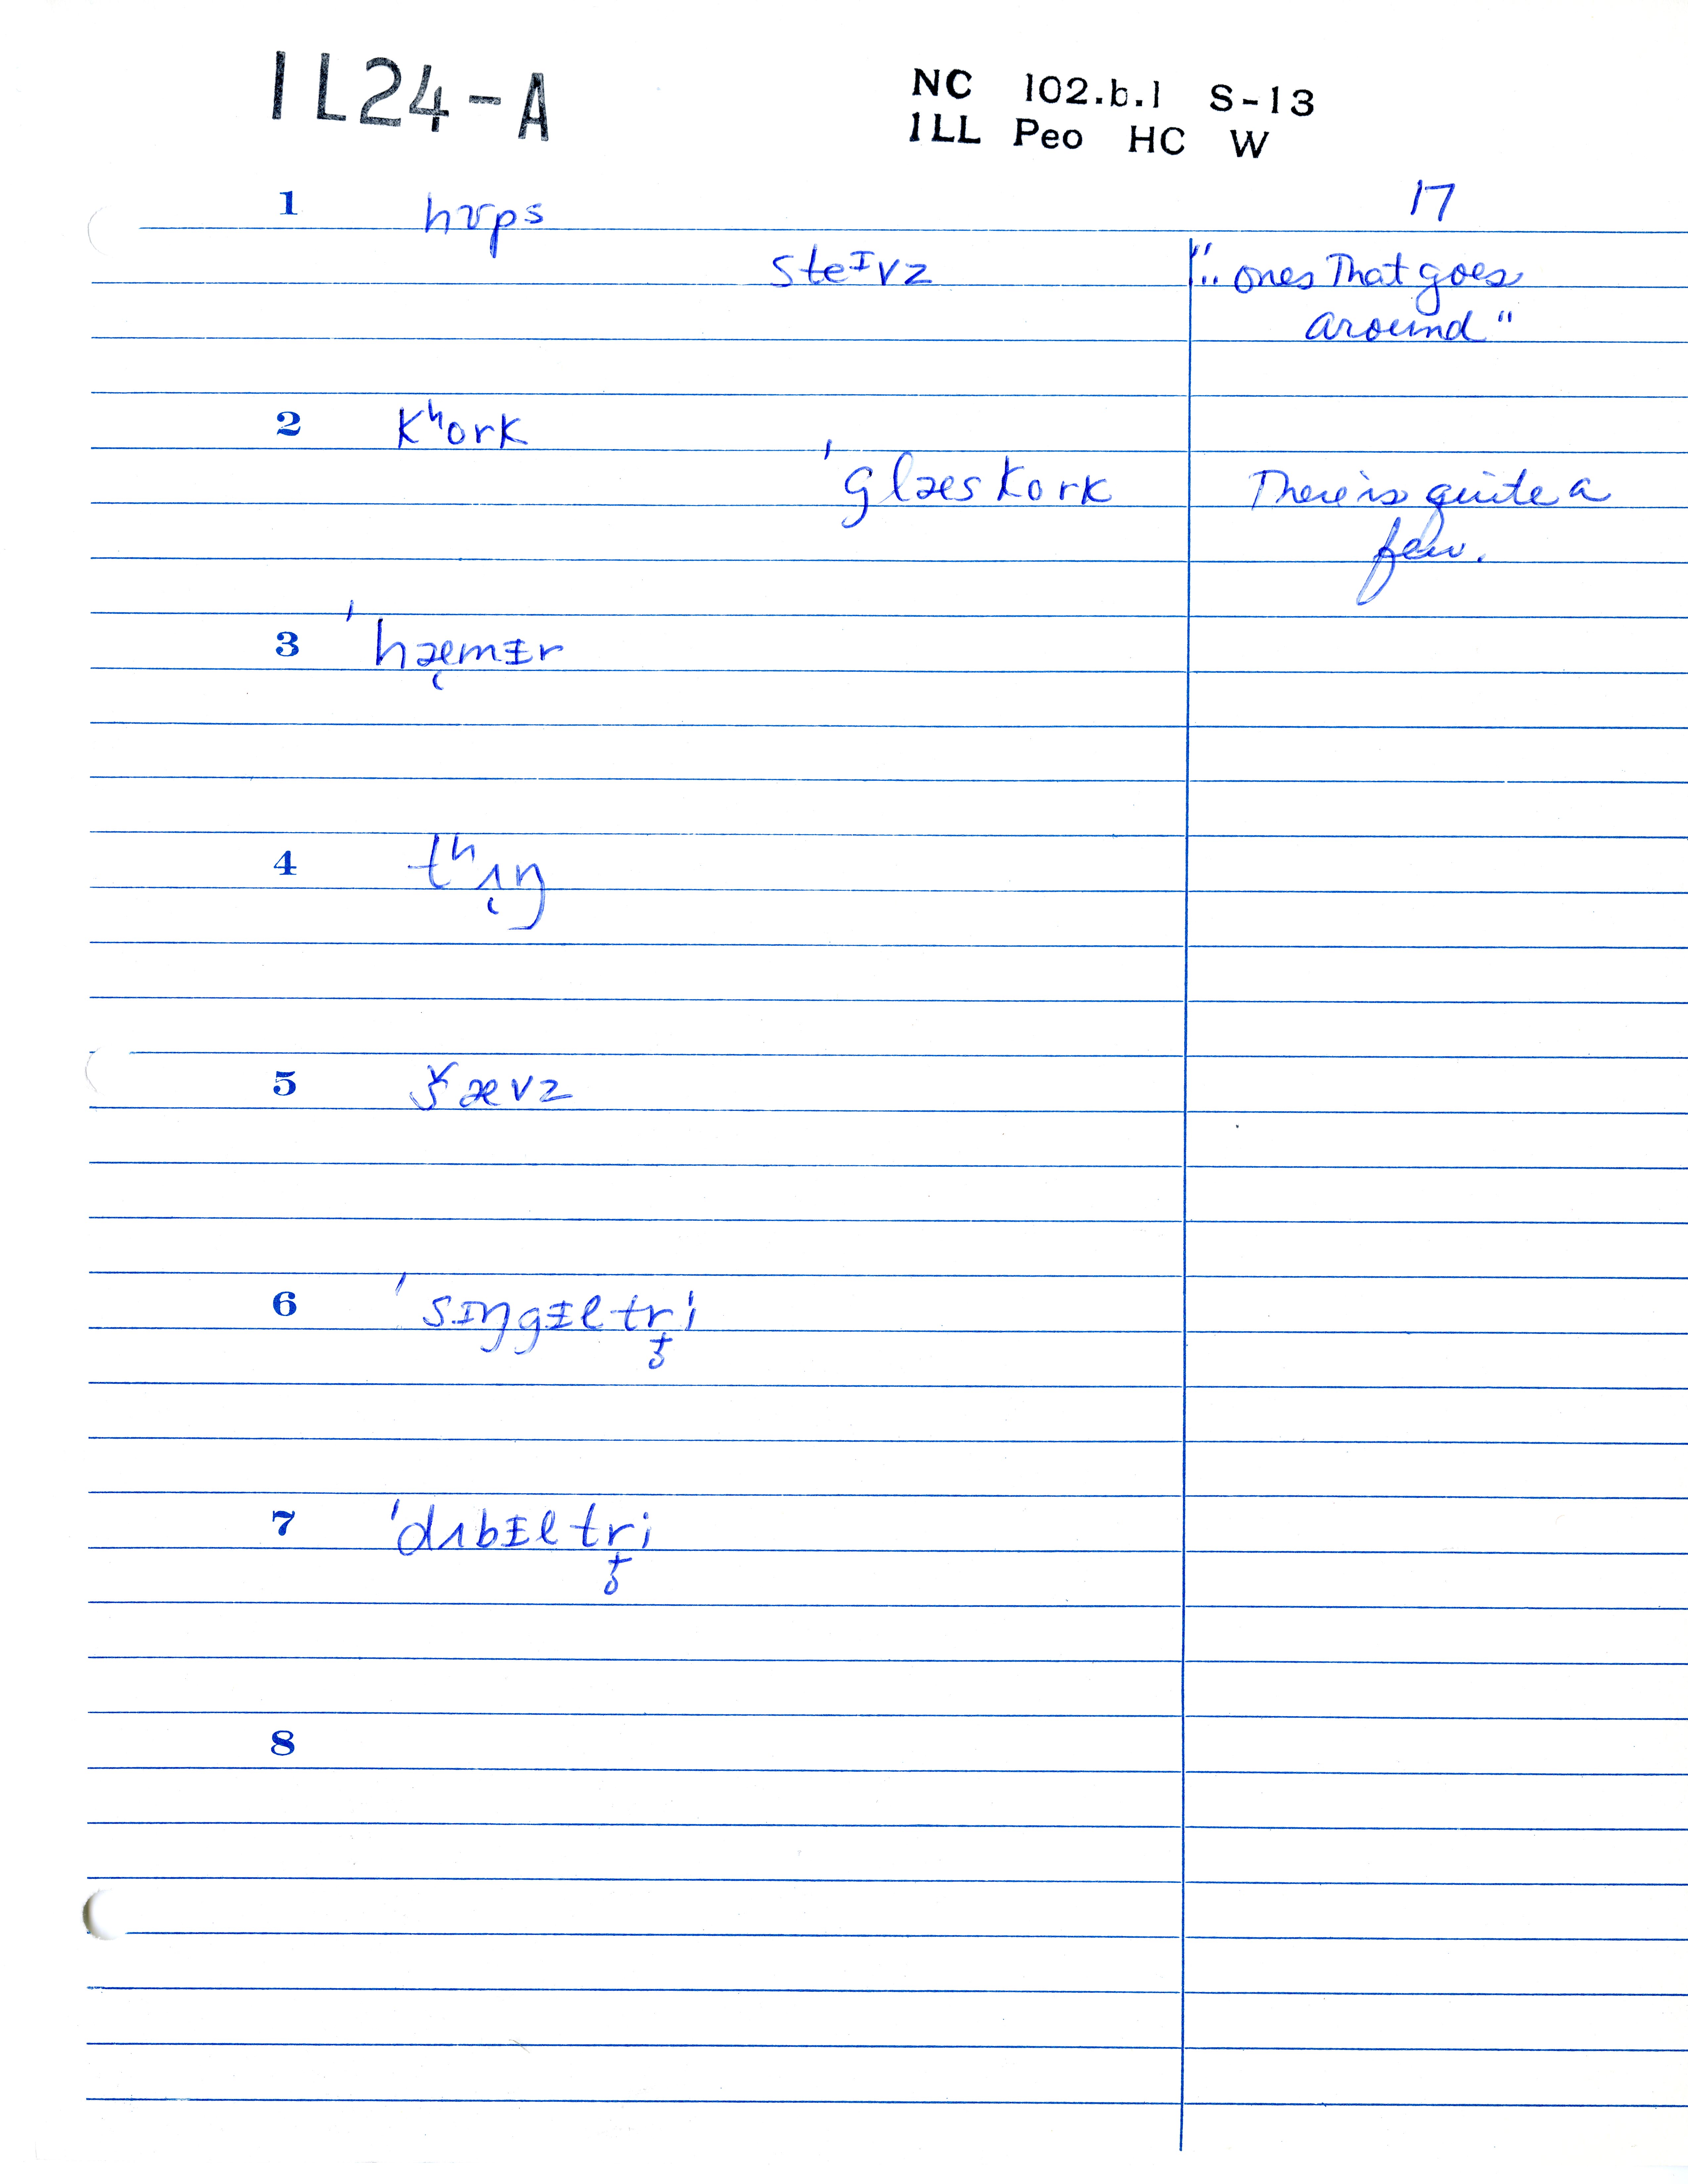 1L24-A
NC 102.b.1 S-13
1LL Peo HC W
17
1 hʊps
steᶦvz "... ones that goes
around"
2 kʰork
'glæskork There is quite a
few.
3 'hæ̜mɨr
4 tʰʌ̜ŋ
5 šævz
6 'sɪŋgɨltr̬i
7 'dʌbɨltr̬i
8